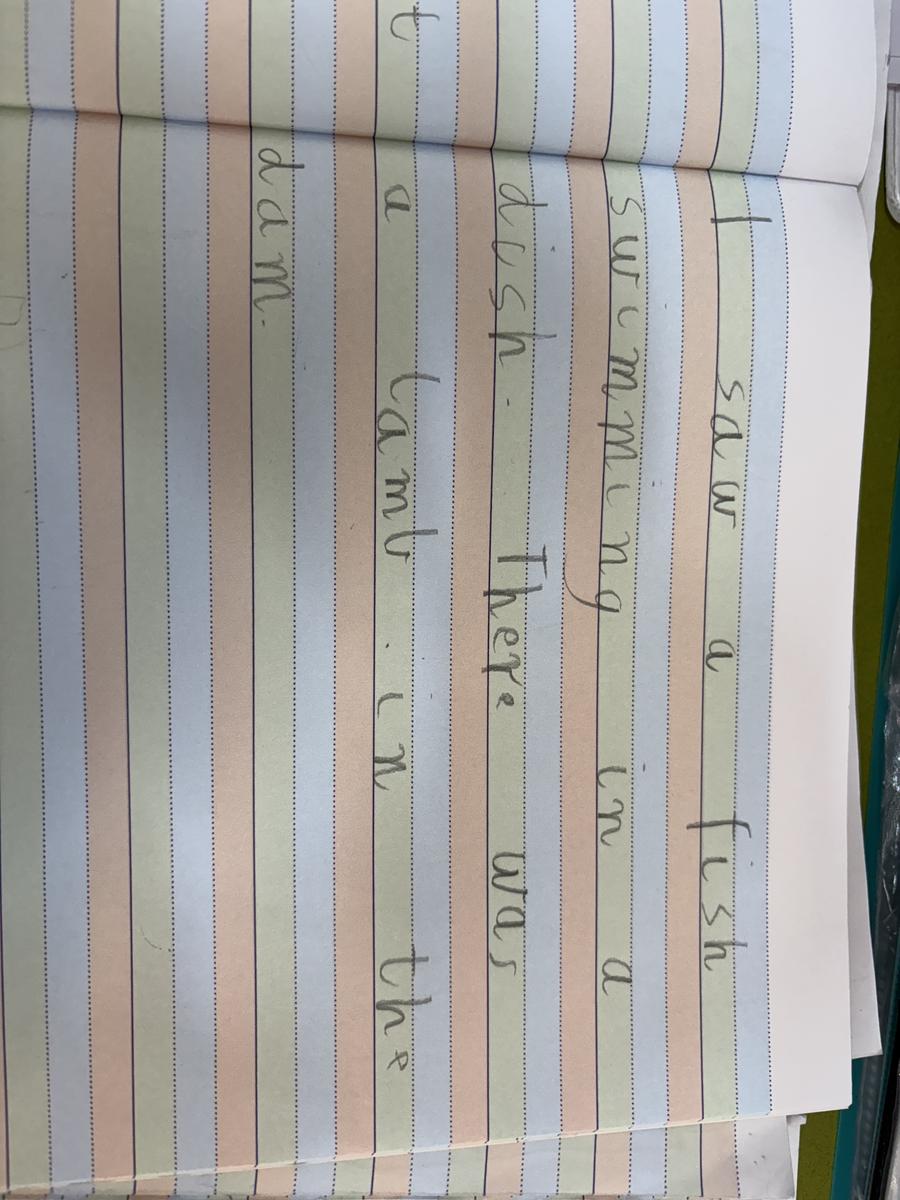 I saw a fish
swimming in a
dish. There was
t a lamb. in the
dam.